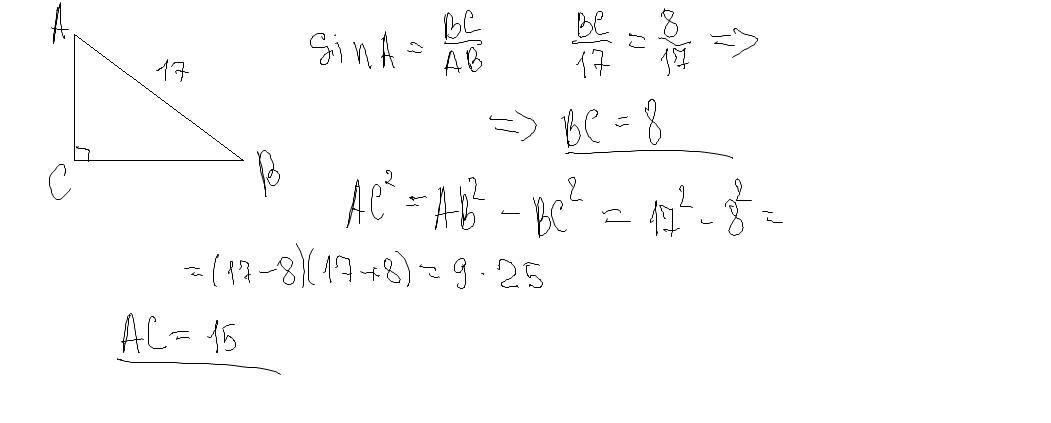 A
17
C
B
sin A = BC/AB BC/17 = 8/17 =>
=> BC = 8
AC² = AB² - BC² = 17² - 8² =
= (17-8)(17+8) = 9 · 25
AC = 15